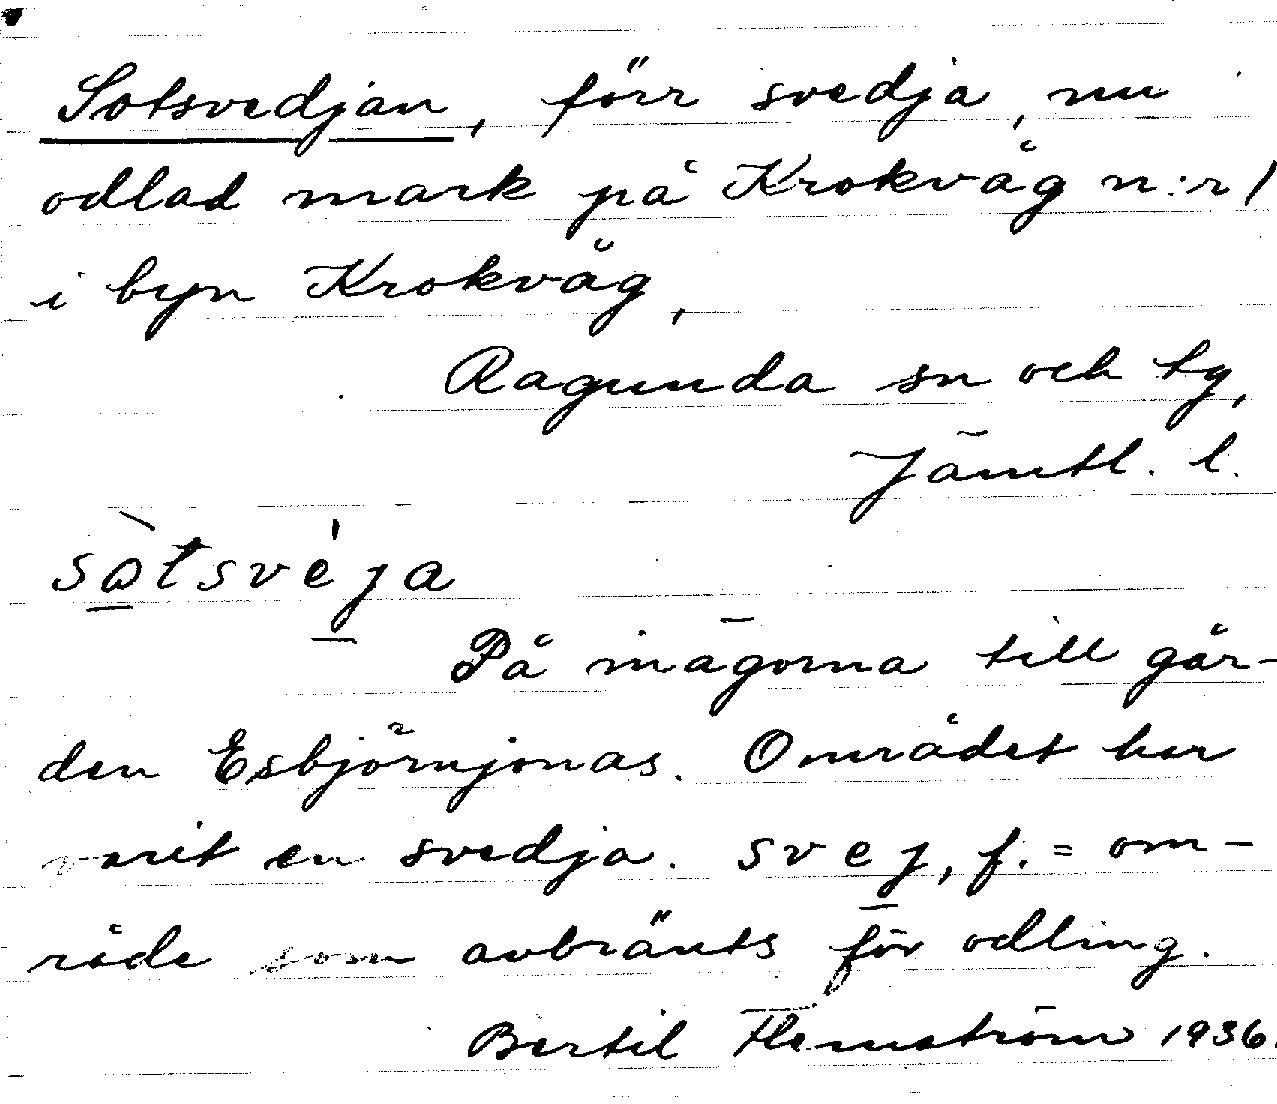 Sotsvedjan, förr svedja, nu
odlad mark på Krokvåg n:r 1
i byn Krokvåg,
Ragunda sn och tg,
Jämtl. l.
sòtsvéja
På inägorna till går-
den Esbjörnjonas. Området har
varit en svedja. svej, f. = om-
råde som avbränts för odling.
Bertil Flemström 1936.